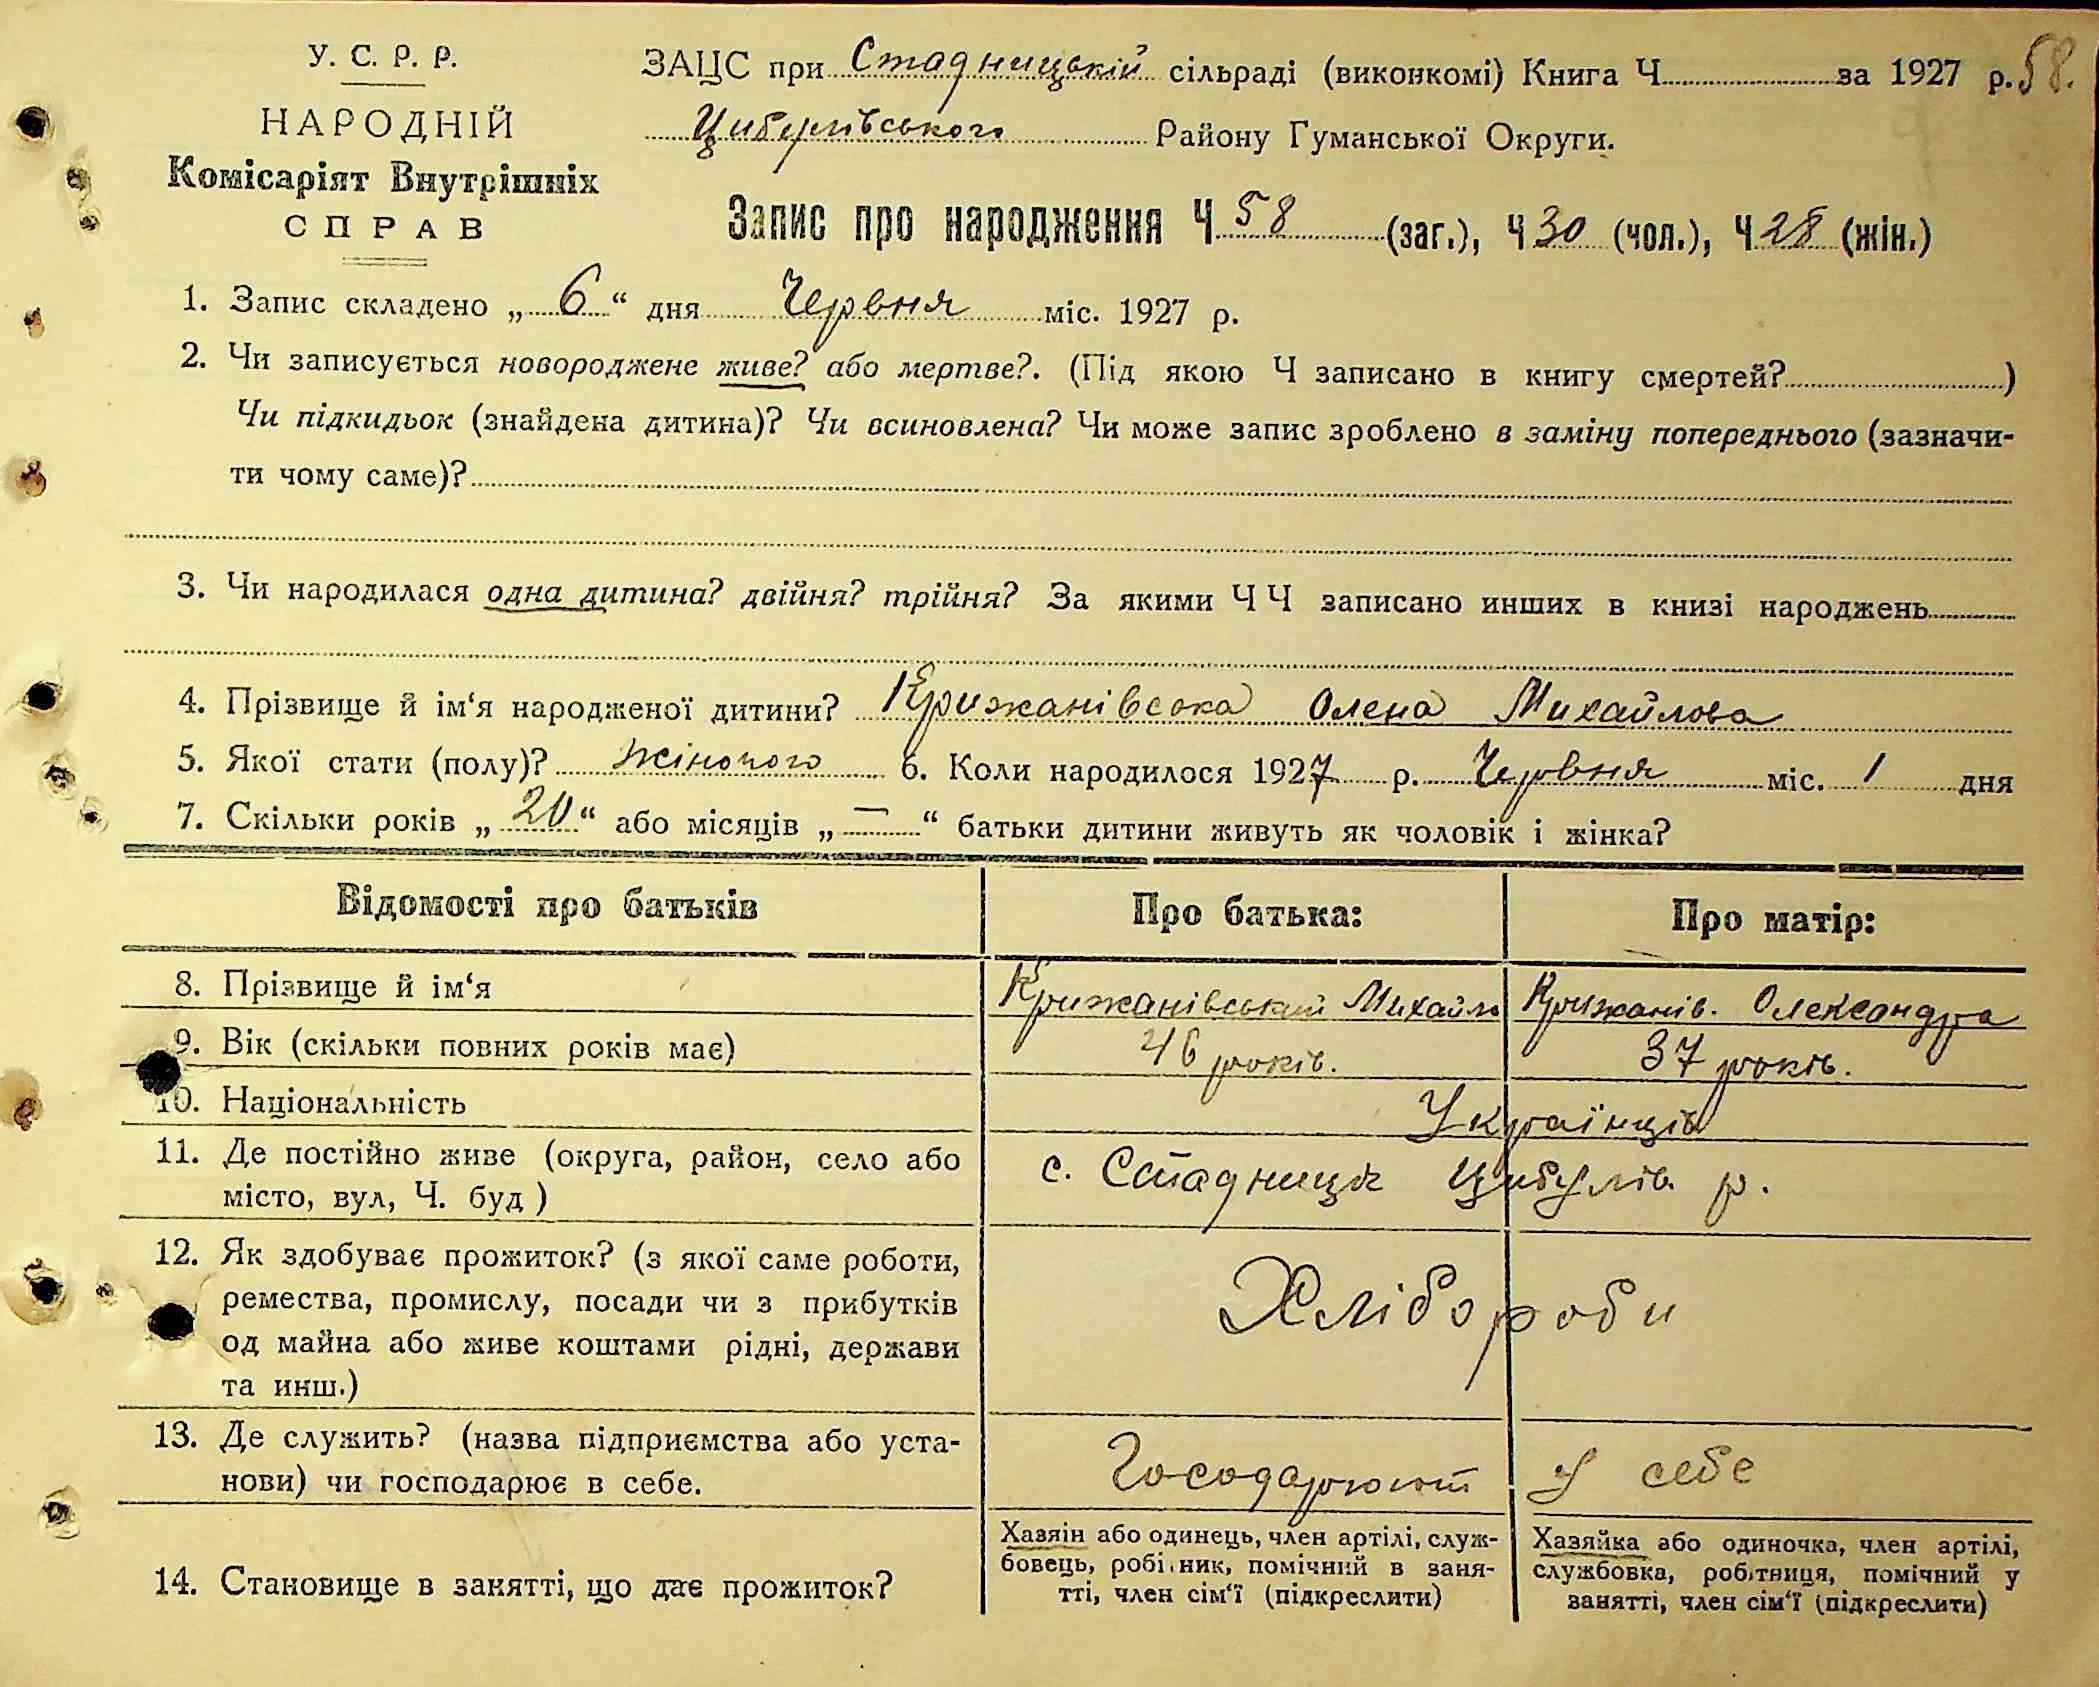 У. С. Р. Р.
НАРОДНІЙ
Комісаріят Внутрішніх
СПРАВ
ЗАЦС при Стадницькій сільраді (виконкомі) Книга Ч за 1927 р. 58.
Цибулівського Району Гуманської Округи.
Запис про народження Ч 58 (заг.), Ч 30 (чол.), Ч 28 (жін.)
1. Запис складено „ 6 “ дня Червня міс. 1927 р.
2. Чи записується новороджене живе? або мертве?. (Під якою Ч записано в книгу смертей? )
Чи підкидьок (знайдена дитина)? Чи всиновлена? Чи може запис зроблено в заміну попереднього (зазначи-
ти чому саме)?
3. Чи народилася одна дитина? двійня? трійня? За якими ЧЧ записано инших в книзі народжень
4. Прізвище й ім‘я народженої дитини? Крижанівська Олена Михайлова
5. Якої стати (полу)? Жіночого 6. Коли народилося 1927 р. Червня міс. 1 дня
7. Скільки років „ 20 “ або місяців „ — “ батьки дитини живуть як чоловік і жінка?
Відомості про батьків Про батька: Про матір:
8. Прізвище й ім‘я Крижанівський Михайло Крижанів. Олександра
9. Вік (скільки повних років має) 46 років. 37 років.
10. Національність Українців
11. Де постійно живе (округа, район, село або
місто, вул, Ч. буд ) с. Стадниця Цибулів. р.
12. Як здобуває прожиток? (з якої саме роботи,
ремества, промислу, посади чи з прибутків
од майна або живе коштами рідні, держави
та инш.) Хлібороби
13. Де служить? (назва підприємства або уста-
нови) чи господарює в себе. Госодарюют у себе
14. Становище в занятті, що дає прожиток?
Хазяін або одинець, член артілі, служ-
бовець, робі.ник, помічний в заня-
тті, член сім‘ї (підкреслити)
Хазяйка або одиночка, член артілі,
службовка, робітниця, помічний у
занятті, член сім‘ї (підкреслити)